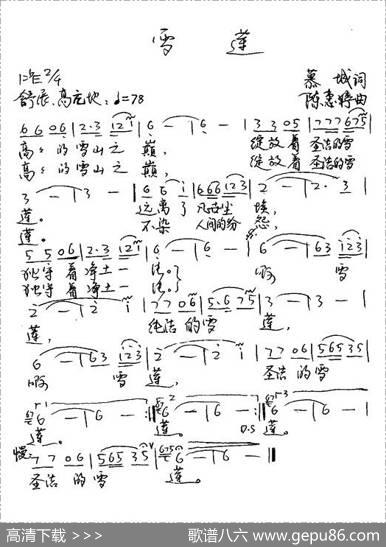 雪 莲
1=E 2/4
慕 城词
舒展、高亢地 ♩=78
陈惠婷曲
6 6 0 6 | 2· 3 1 2 i | 6 – | 6 – | 3 3 0 5 | 7 7 7 6 7 5 |
高高的雪山之 巅, 绽放着 圣洁的雪
高高的雪山之 巅, 绽放着 圣洁的雪
3 – | 3 – | 6 6 i | 6 6 6 1 2 3 | 2 – | 2· 3 |
莲。 远离了 凡世尘 埃,
莲。 不染 人间的纷 怨,
5 5 0 6 | 2· 3 1 2 i | 6 – | 6 – | 6 – | 6 3 i 2 3 |
独守着净土一 啊 雪
独守着净土一
2 – | 2 – i | 7 7 0 6 | 5· 6 7 5 | 3 – | 3 – |
莲, 纯洁的雪 莲,
6 – | 6 3 i 2 3 | 2 – | 2 – i | 7 7 0 6 | 5 6 5 3 5 |
啊 雪 莲, 圣洁的雪
6 – | 6 – :| 6 – | 6 – :| 6 – | 6 – |
莲。 莲。 D.S 莲。
慢 7 7 0 6 | 5 6 5 3 5 | 6 – | 6 – ‖
圣洁的雪 莲。
高清下载 >>>
歌谱八六 www.gepu86.com